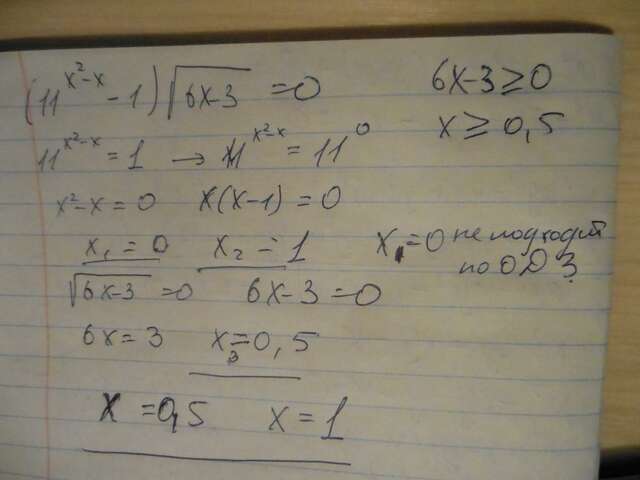 (11^(x²-x) - 1)√(6x-3) = 0
6x-3 ≥ 0
x ≥ 0,5
11^(x²-x) = 1 → 11^(x²-x) = 11^0
x²-x = 0 x(x-1) = 0
x₁ = 0 x₂ = 1
x₁ = 0 не подходит
по ОДЗ
√(6x-3) = 0 6x-3 = 0
6x = 3 x₃ = 0,5
x = 0,5 x = 1